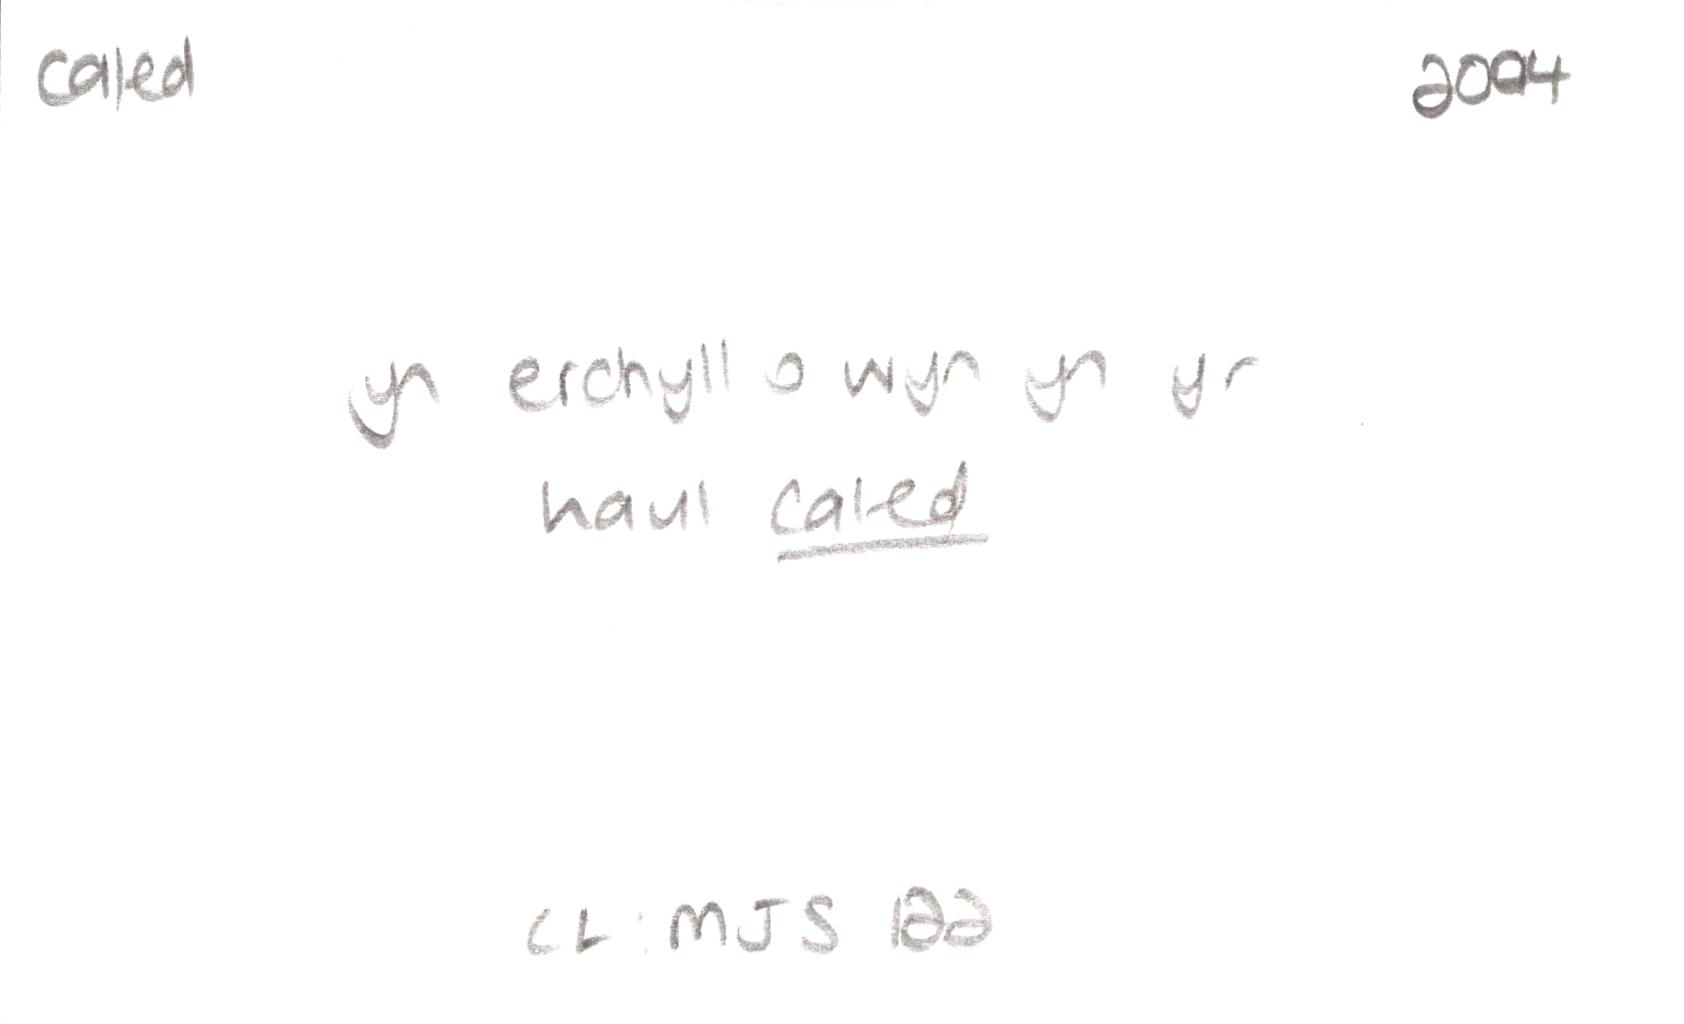 caled 2004
yn erchyll o wyn yn yr
haul caled
CL: MJS 122